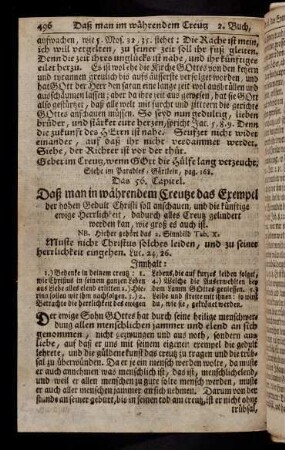 496 Daß man im währendem Creutz 2. Buch,
aufwachen, wie 5. Mos. 32. 35. stehet: Die Rache ist mein,
ich will vergelten, zu seiner zeit soll ihr fuß gleiten.
Denn die zeit ihres unglücks ist nahe, und ihr künftiges
eilet herzu. Es ist wol ehe die Kirche GOttes von den ketzern
und tyrannen greulich bis aufs äusserste verfolget worden, und
hat GOtt der HErr den satan eine lange zeit also rasen
und ausschäumen lassen; aber da ihre zeit aus gewesen, hat sie GOtt
also gestürtzet, daß alle welt mit furcht und zittern die gerichte
GOttes anschauen müssen. So seyd nun gedultig, lieben
brüder, und stärcket eure hertzen, spricht Jac. 5, 8. 9. Denn
die zukunft des HErrn ist nahe. Seufzet nicht wider
einander, auf daß ihr nicht verdammet werdet.
Siehe, der Richter ist vor der thür.
Gebet im Creutz, wenn GOtt die Hülfe lang verzeucht,
Siehe im Paradies-Gärtlein, pag. 162.
Das 56. Capitel.
Daß man in währendem Creutze das Exempel
der hohen Gedult Christi soll anschauen, und die künftige
ewige Herrlichkeit, dadurch alles Creutz gelindert
werden kan, wie groß es auch ist.
NB. Hieher gehört das 2. Sinnbild Tab. X.
Muste nicht Christus solches leiden, und zu seiner
herrlichkeit eingehen. Luc. 24, 26.
Innhalt:
1.) Gedencke in deinem creutz: 1.
wie Christus in seinem gantzen Leben
aus Liebe alles elend erlitten; 2.) hier-
inn sollen wir ihm nachfolgen. 3.) 2.
Betrachte die herrlichkeit des ewigen
Lebens, die auf kurtzes leiden folget,
4.) Welche die Auserwehlten bey
dem Lamm GOttes geniessen,
5.) und es bleibet doch kein creutz ewig
da, wie sie, gekräncket werden.
Der ewige Sohn GOttes hat durch seine heilige menschwer-
dung allen menschlichen jammer und elend an sich
genommen, nicht gezwungen und aus noth, sondern aus
Liebe, auf daß er uns mit seinem eigenen exempel die gedult
lehrete, und die güldene kunst das creutz zu tragen und die trüb-
sal zu überwinden. Da er je ein mensch werden wolte, da muste
er auch annehmen was menschlich ist, das ist, menschliches elend,
und weil er allen menschen zu gute solte mensch werden, muste
er auch aller menschen jammer an sich nehmen. Darum von der
stunde an seiner geburt, bis in seinen tod am creutz, ist er nicht ohne
trübsal,